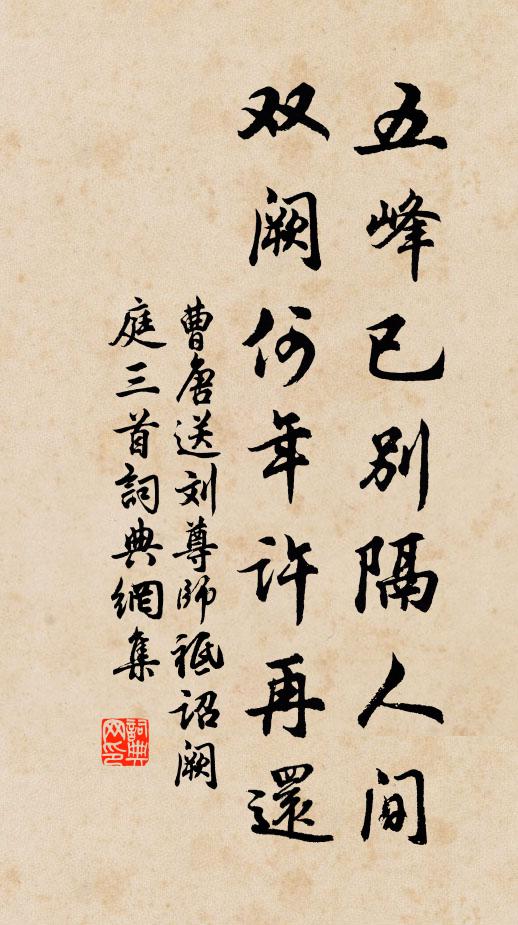 五峰已别隔人间
双阙何年许再還
曹唐送刘尊师祗诏阙
庭三首詞典網集
詞典
网印